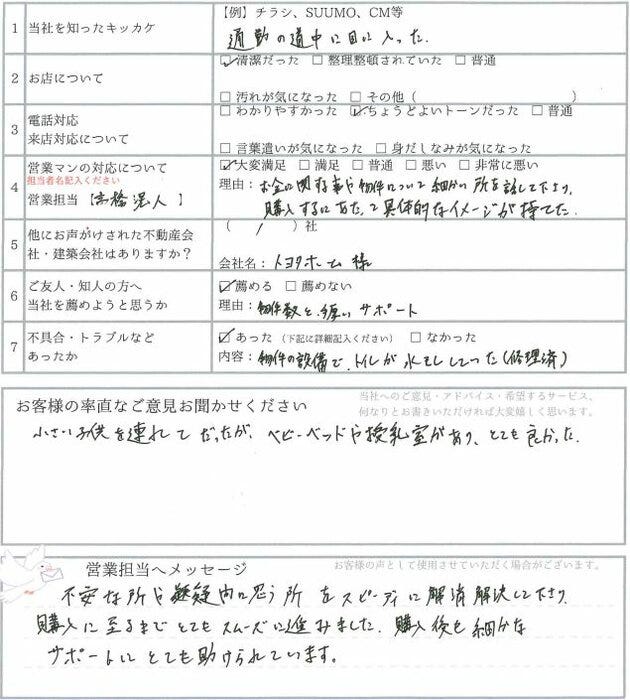 1 当社を知ったキッカケ 【例】チラシ、SUUMO、CM等
通勤の道中に目に入った.
2 お店について ☑清潔だった □整理整頓されていた □普通
□汚れが気になった □その他（ ）
3 電話対応 来店対応について □わかりやすかった ☑ちょうどよいトーンだった □普通
□言葉遣いが気になった □身だしなみが気になった
4 営業マンの対応について ☑大変満足 □満足 □普通 □悪い □非常に悪い
担当者名記入ください
営業担当【高橋 人】
理由：お金に関する事や物件について細かい所を話して下さり、
購入するにあたって具体的なイメージが持てた.
5 他にお声がけされた不動産会
社・建築会社はありますか？
（ 1 ）社
会社名：トヨタホーム 様
6 ご友人・知人の方へ
当社を薦めようと思うか
☑薦める □薦めない
理由：物件数と、手厚いサポート
7 不具合・トラブルなど
あったか
☑あった（下記に詳細記入ください） □なかった
内容：物件の設備で、トイレが水モレしていった(修理済)
お客様の率直なご意見お聞かせください
当社へのご意見・アドバイス・希望するサービス、
何なりとお書きいただければ大変嬉しく思います。
小さい子供を連れてだったが、ベビーベッドや授乳室があり、とても良かった.
営業担当へメッセージ
お客様の声として使用させていただく場合がございます。
不安な所や疑問に思う所をスピーディに解消解決して下さり、
購入に至るまでとてもスムーズに進みました. 購入後も細かな
サポートにとても助けられています。